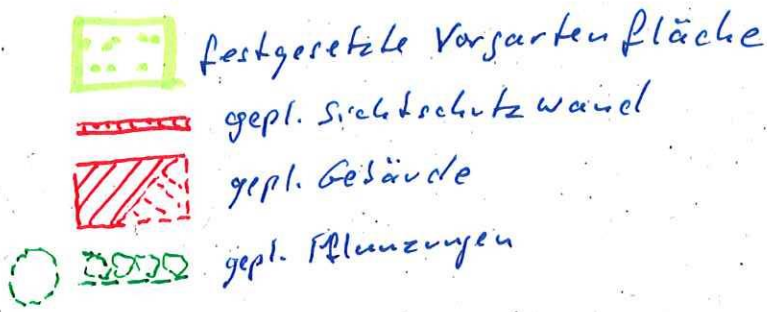 festgesetzte Vorgartenfläche
gepl. Sichtschutzwand
gepl. Gebäude
gepl. Pflanzungen